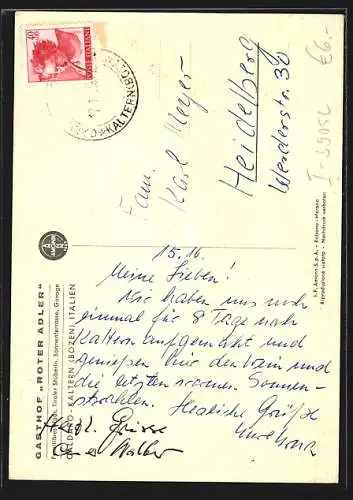 GASTHOF „ROTER ADLER"
Familienbetrieb, Tiroler Stüberln, Sonnenterrasse, Garage
CALDARO - KALTERN (BOZEN) ITALIEN
POSTE ITALIANE
KALTERN (BOZ
Fam.
Karl Meyer
Heidelberg
Werderstr. 30
€6.-
I-39052
I. F. Amonn S.p.A. - Bolzano - Merano
Riproduzione vietata - Nachdruck verboten
AMONN
15. 10.
Meine Lieben!
Wir haben uns noch
einmal für 8 Tage nach
Kaltern aufgemacht und
genießen hier den Wein und
die letzten warmen Sonnen-
strahlen. Herzliche Grüße
Herzl. Grüsse
Walter